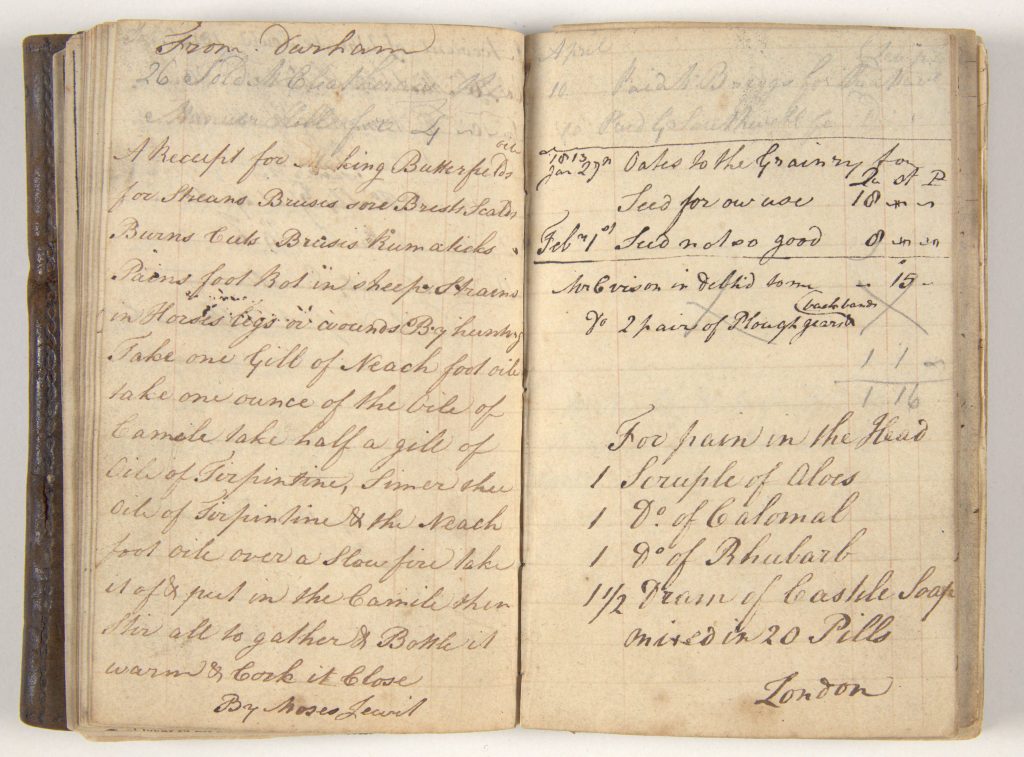 From Durham
26 Sold Mr
for 4
A Receipt for Making Butterfields oile
for Streans Bruses sore Brests Scalds
Burns Cuts Brusis Rumaticks
Paens foot Rot in sheep Strains
in Horses legs or wounds By hunting
Take one Gill of Neach foot oile
take one ounce of the oile of
Camile take half a gill of
Oile of Tirpintine, Simer the
Oile of Tirpintine & the Neach
foot oile over a Slow fire take
it of & put in the Camile then
Stir all to gather & Bottle it
warm & Cork it Close
By Moses Jewit
April
10 Paid Mr Briggs for
10 Paid G
1813
Jan 27th Oates to the Grainry for
Qu st P
Seed for our use 18 " "
Feby 1st Seed not so good 8 " "
Mr Evison in Debt'd to me - 15 -
back bands
Do 2 pair of Plough gears
1 1
1 16
For pain in the Head
1 Scruple of Aloes
1 Do. of Calomal
1 Do of Rhubarb
1 1/2 Dram of Castile Soap
mixed in 20 Pills
London